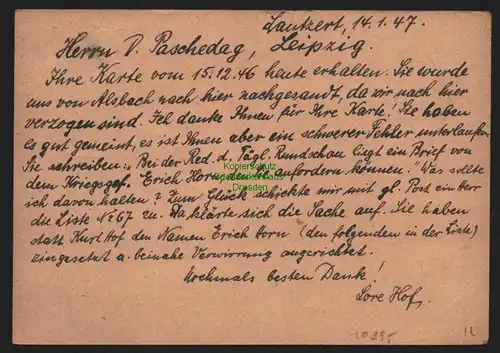 Lautzert, 14.1.47.
Herrn V. Paschedag, Leipzig.
Ihre Karte vom 15.12.46 heute erhalten. Sie wurde
uns von Alsbach nach hier nachgesandt, da wir nach hier
verzogen sind. Ich danke Ihnen für Ihre Karte! Sie haben
es gut gemeint, es ist Ihnen aber ein schwerer Fehler unterlaufen
Sie schreiben: Bei der Red. d. Tägl. Rundschau liegt ein Brief von
dem Kriegsgef. Erich Horn, den anfordern können. "Was sollte
ich davon halten? Zum Glück schickte mir mit gl. Post ein Herr
die Liste № 67 zu. Da klärte sich die Sache auf. Sie haben
statt Kurt Hof den Namen Erich Horn (den folgenden in der Liste)
eingesetzt u. beinahe Verwirrung angerichtet.
Nochmals besten Dank!
Lore Hof.
Kopierschutz
Dresden